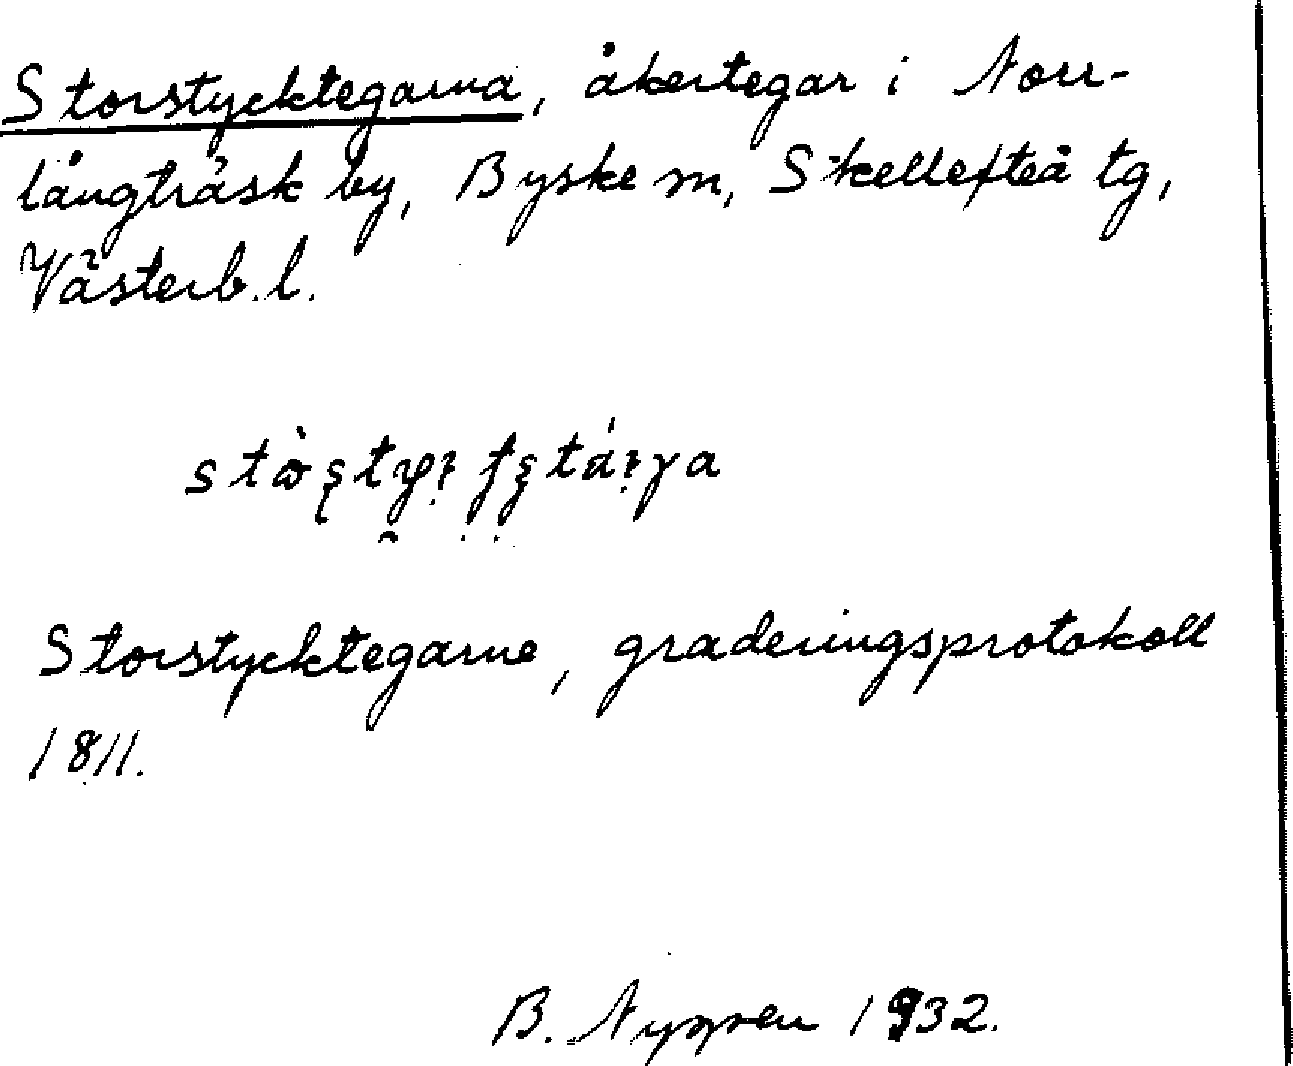 Storstycktegarna, åkertegar i Norr-
långträsk by, Byske sn, Skellefteå tg,
Västerb. l.
Storstycktegarne, graderingsprotokoll
1811.
B. Nygren 1932.